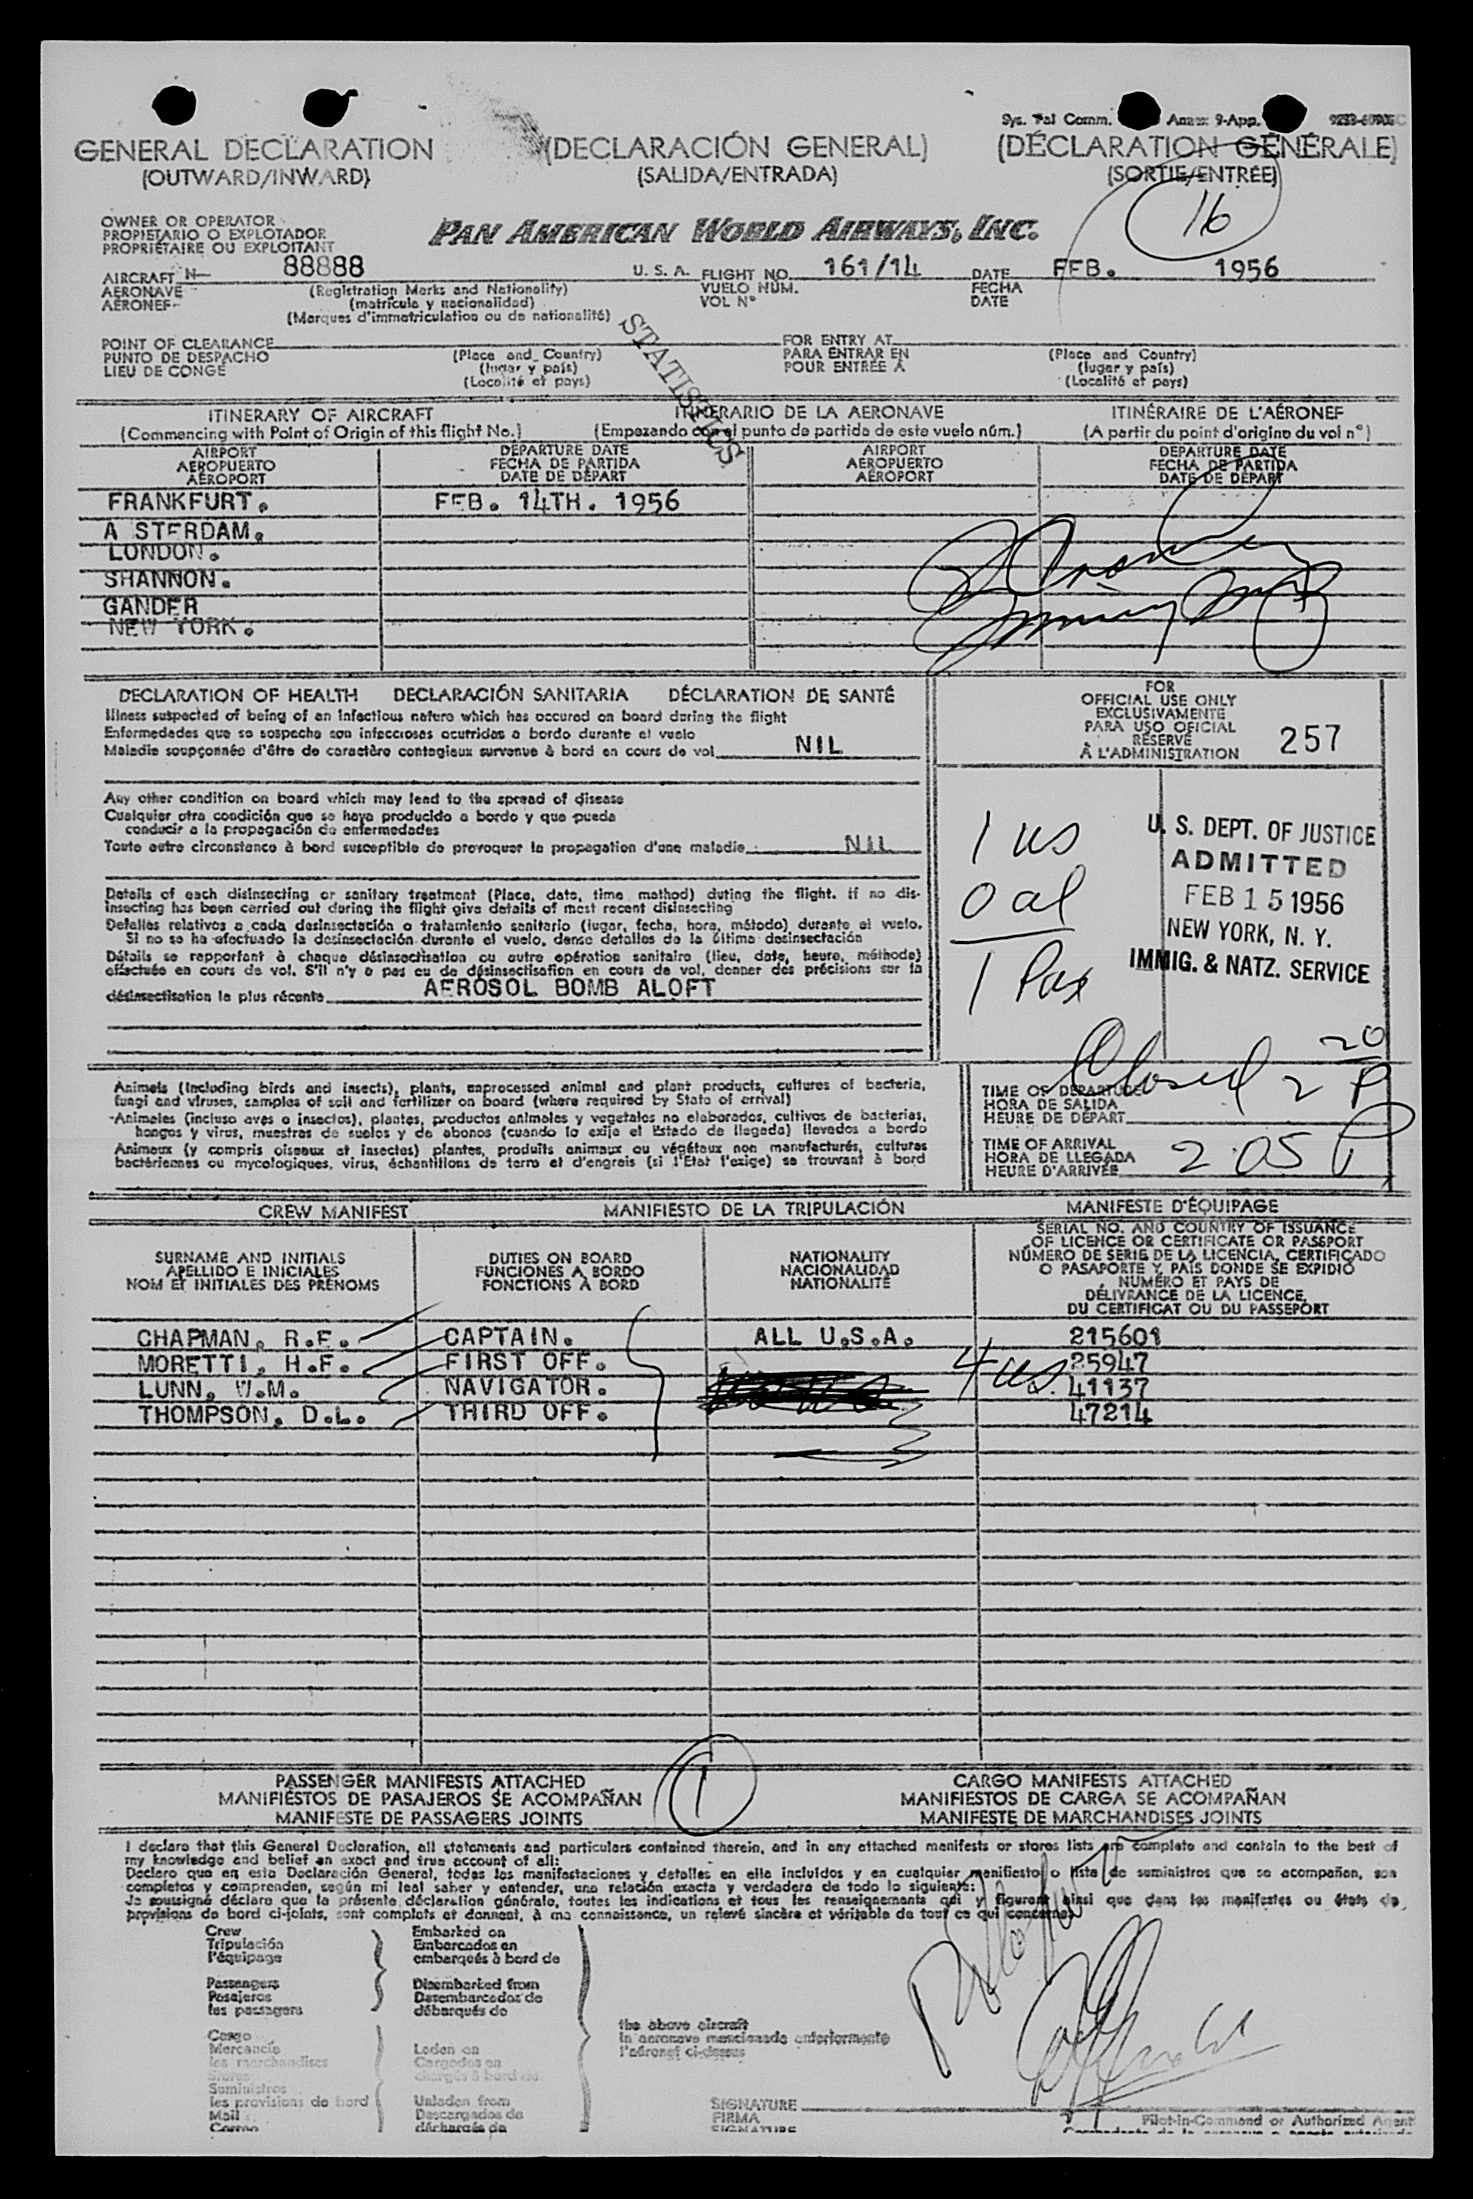 Sys. Pal Comm. Annex 9-App.
GENERAL DECLARATION (DECLARACIÓN GENERAL) (DÉCLARATION GÉNÉRALE)
(OUTWARD/INWARD) (SALIDA/ENTRADA) (SORTIE/ENTRÉE)
16
OWNER OR OPERATOR
PROPIETARIO O EXPLOTADOR
PROPRIÉTAIRE OU EXPLOITANT
PAN AMERICAN WORLD AIRWAYS, INC.
AIRCRAFT N- 88888 U. S. A. FLIGHT NO. 161/14 DATE FEB. 1956
AERONAVE (Registration Marks and Nationality) VUELO NÚM. FECHA
AÉRONEF (matrícula y nacionalidad) VOL N° DATE
(Marques d'immatriculation ou de nationalité)
STATISTICS
POINT OF CLEARANCE FOR ENTRY AT
PUNTO DE DESPACHO (Place and Country) PARA ENTRAR EN (Place and Country)
LIEU DE CONGÉ (lugar y país) POUR ENTRÉE À (lugar y país)
(Localité et pays) (Localité et pays)
ITINERARY OF AIRCRAFT ITINERARIO DE LA AERONAVE ITINÉRAIRE DE L'AÉRONEF
(Commencing with Point of Origin of this flight No.) (Empezando con el punto de partida de este vuelo núm.) (A partir du point d'origine du vol n°)
AIRPORT DEPARTURE DATE AIRPORT DEPARTURE DATE
AEROPUERTO FECHA DE PARTIDA AEROPUERTO FECHA DE PARTIDA
AÉROPORT DATE DE DÉPART AÉROPORT DATE DE DÉPART
FRANKFURT. FEB. 14TH. 1956
A STERDAM.
LONDON.
SHANNON.
GANDER
NEW YORK.
DECLARATION OF HEALTH DECLARACIÓN SANITARIA DÉCLARATION DE SANTÉ
Illness suspected of being of an infectious nature which has occured on board during the flight
Enfermedades que se sospecha son infecciosas ocurridas a bordo durante el vuelo
Maladie soupçonnée d'être de caractère contagieux survenue à bord en cours de vol NIL
Any other condition on board which may lead to the spread of disease
Cualquier otra condición que se haya producido a bordo y que pueda
conducir a la propagación de enfermedades
Toute autre circonstance à bord susceptible de provoquer la propagation d'une maladie NIL
Details of each disinsecting or sanitary treatment (Place, date, time, method) during the flight. If no dis-
insecting has been carried out during the flight give details of most recent disinsecting
Detalles relativos a cada desinsectación o tratamiento sanitario (lugar, fecha, hora, método) durante el vuelo.
Si no se ha efectuado la desinsectación durante el vuelo, dense detalles de la última desinsectación
Détails se rapportant à chaque désinsectisation ou autre opération sanitaire (lieu, date, heure, méthode)
effectuée en cours de vol. S'il n'y a pas eu de désinsectisation en cours de vol, donner des précisions sur la
désinsectisation la plus récente AEROSOL BOMB ALOFT
FOR
OFFICIAL USE ONLY
EXCLUSIVAMENTE
PARA USO OFICIAL
RÉSERVÉ
À L'ADMINISTRATION
257
1 us
0 al
1 Pax
U. S. DEPT. OF JUSTICE
ADMITTED
FEB 15 1956
NEW YORK, N. Y.
IMMIG. & NATZ. SERVICE
Animals (including birds and insects), plants, unprocessed animal and plant products, cultures of bacteria,
fungi and viruses, samples of soil and fertilizer on board (where required by State of arrival)
Animales (incluso aves o insectos), plantas, productos animales y vegetales no elaborados, cultivos de bacterias,
hongos y virus, muestras de suelos y de abonos (cuando lo exija el Estado de llegada) llevados a bordo
Animaux (y compris oiseaux et insectes) plantes, produits animaux ou végétaux non manufacturés, cultures
bactériennes ou mycologiques, virus, échantillons de terre et d'engrais (si l'État l'exige) se trouvant à bord
Closed 2 20 P
TIME OF DEPARTURE
HORA DE SALIDA
HEURE DE DÉPART
TIME OF ARRIVAL
HORA DE LLEGADA
HEURE D'ARRIVÉE 2 05 P
CREW MANIFEST MANIFIESTO DE LA TRIPULACIÓN MANIFESTE D'ÉQUIPAGE
SURNAME AND INITIALS DUTIES ON BOARD NATIONALITY
APELLIDO E INICIALES FUNCIONES A BORDO NACIONALIDAD
NOM ET INITIALES DES PRÉNOMS FONCTIONS À BORD NATIONALITÉ
SERIAL NO. AND COUNTRY OF ISSUANCE
OF LICENCE OR CERTIFICATE OR PASSPORT
NÚMERO DE SERIE DE LA LICENCIA, CERTIFICADO
O PASAPORTE Y PAÍS DONDE SE EXPIDIÓ
NUMÉRO ET PAYS DE
DÉLIVRANCE DE LA LICENCE,
DU CERTIFICAT OU DU PASSEPORT
CHAPMAN, R.E. CAPTAIN. ALL U.S.A. 215601
MORETTI, H.F. FIRST OFF. 4 us 25947
LUNN, W.M. NAVIGATOR. 41137
THOMPSON, D.L. THIRD OFF. 47214
PASSENGER MANIFESTS ATTACHED 1 CARGO MANIFESTS ATTACHED
MANIFIESTOS DE PASAJEROS SE ACOMPAÑAN MANIFIESTOS DE CARGA SE ACOMPAÑAN
MANIFESTE DE PASSAGERS JOINTS MANIFESTE DE MARCHANDISES JOINTS
I declare that this General Declaration, all statements and particulars contained therein, and in any attached manifests or stores lists are complete and contain to the best of
my knowledge and belief an exact and true account of all:
Declaro que en esta Declaración General, todas las manifestaciones y detalles en ella incluídos y en cualquier manifiesto o lista de suministros que se acompañan, son
completos y comprenden, según mi leal saber y entender, una relación exacta y verdadera de todo lo siguiente:
Je soussigné déclare que la présente déclaration générale, toutes les indications et tous les renseignements qui y figurent ainsi que dans les manifestes ou états de
provisions de bord ci-joints, sont complets et donnent, à ma connaissance, un relevé sincère et véritable de tout ce qui concerne:
Crew Embarked on
Tripulación Embarcados en
l'équipage embarqués à bord de
Passengers Disembarked from
Pasajeros Desembarcados de
les passagers débarqués de
the above aircraft
la aeronave mencionada anteriormente
l'aéronef ci-dessus
Cargo
Mercancía Laden on
les marchandises Cargados en
Stores chargés à bord de
Suministros
les provisions de bord Unladen from
Mail Descargados de
Correo déchargés de
SIGNATURE
FIRMA Pilot-in-Command or Authorized Agent
SIGNATURE